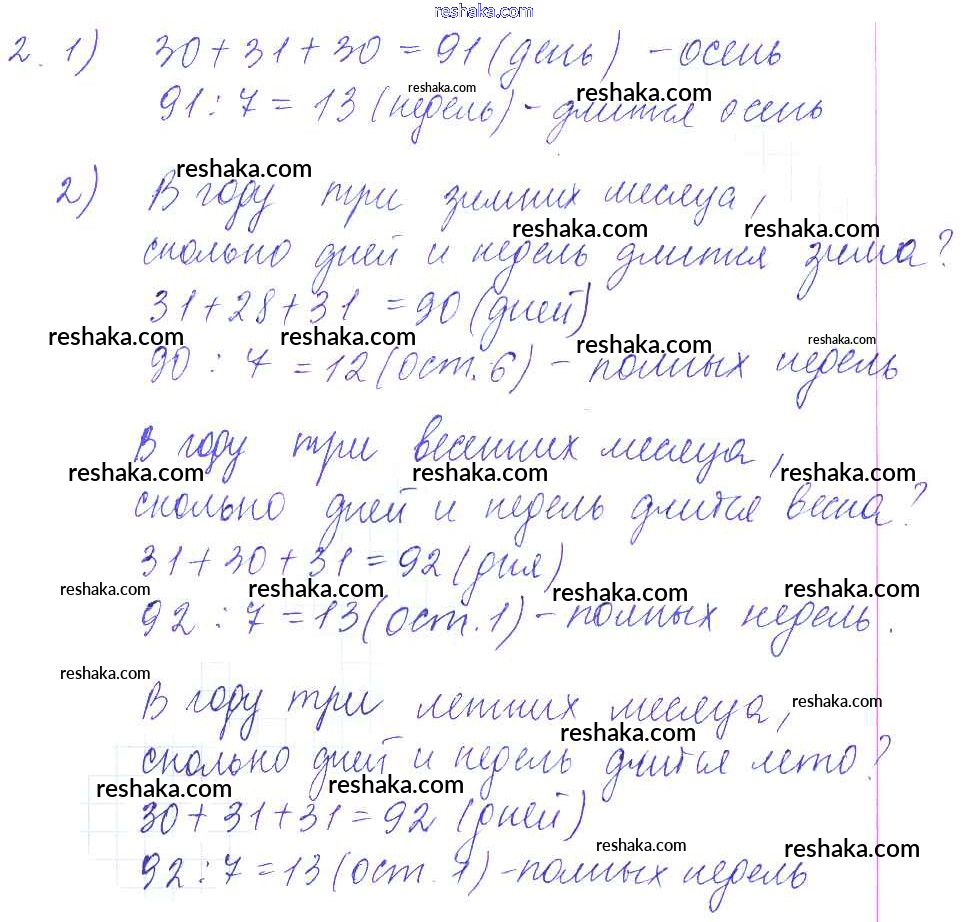 reshaka.com
2. 1) 30 + 31 + 30 = 91 (день) - осень
reshaka.com reshaka.com
91 : 7 = 13 (недель) - длится осень
reshaka.com reshaka.com
reshaka.com
2) В году три зимних месяца,
reshaka.com reshaka.com
сколько дней и недель длится зима?
31 + 28 + 31 = 90 (дней)
reshaka.com reshaka.com reshaka.com reshaka.com
90 : 7 = 12 (ост. 6) - полных недель
В году три весенних месяца,
reshaka.com reshaka.com reshaka.com
сколько дней и недель длится весна?
31 + 30 + 31 = 92 (дня)
reshaka.com reshaka.com reshaka.com reshaka.com
92 : 7 = 13 (ост. 1) - полных недель.
reshaka.com
В году три летних месяца,
reshaka.com
reshaka.com
сколько дней и недель длится лето?
reshaka.com reshaka.com
30 + 31 + 31 = 92 (дней)
reshaka.com reshaka.com
92 : 7 = 13 (ост. 1) - полных недель